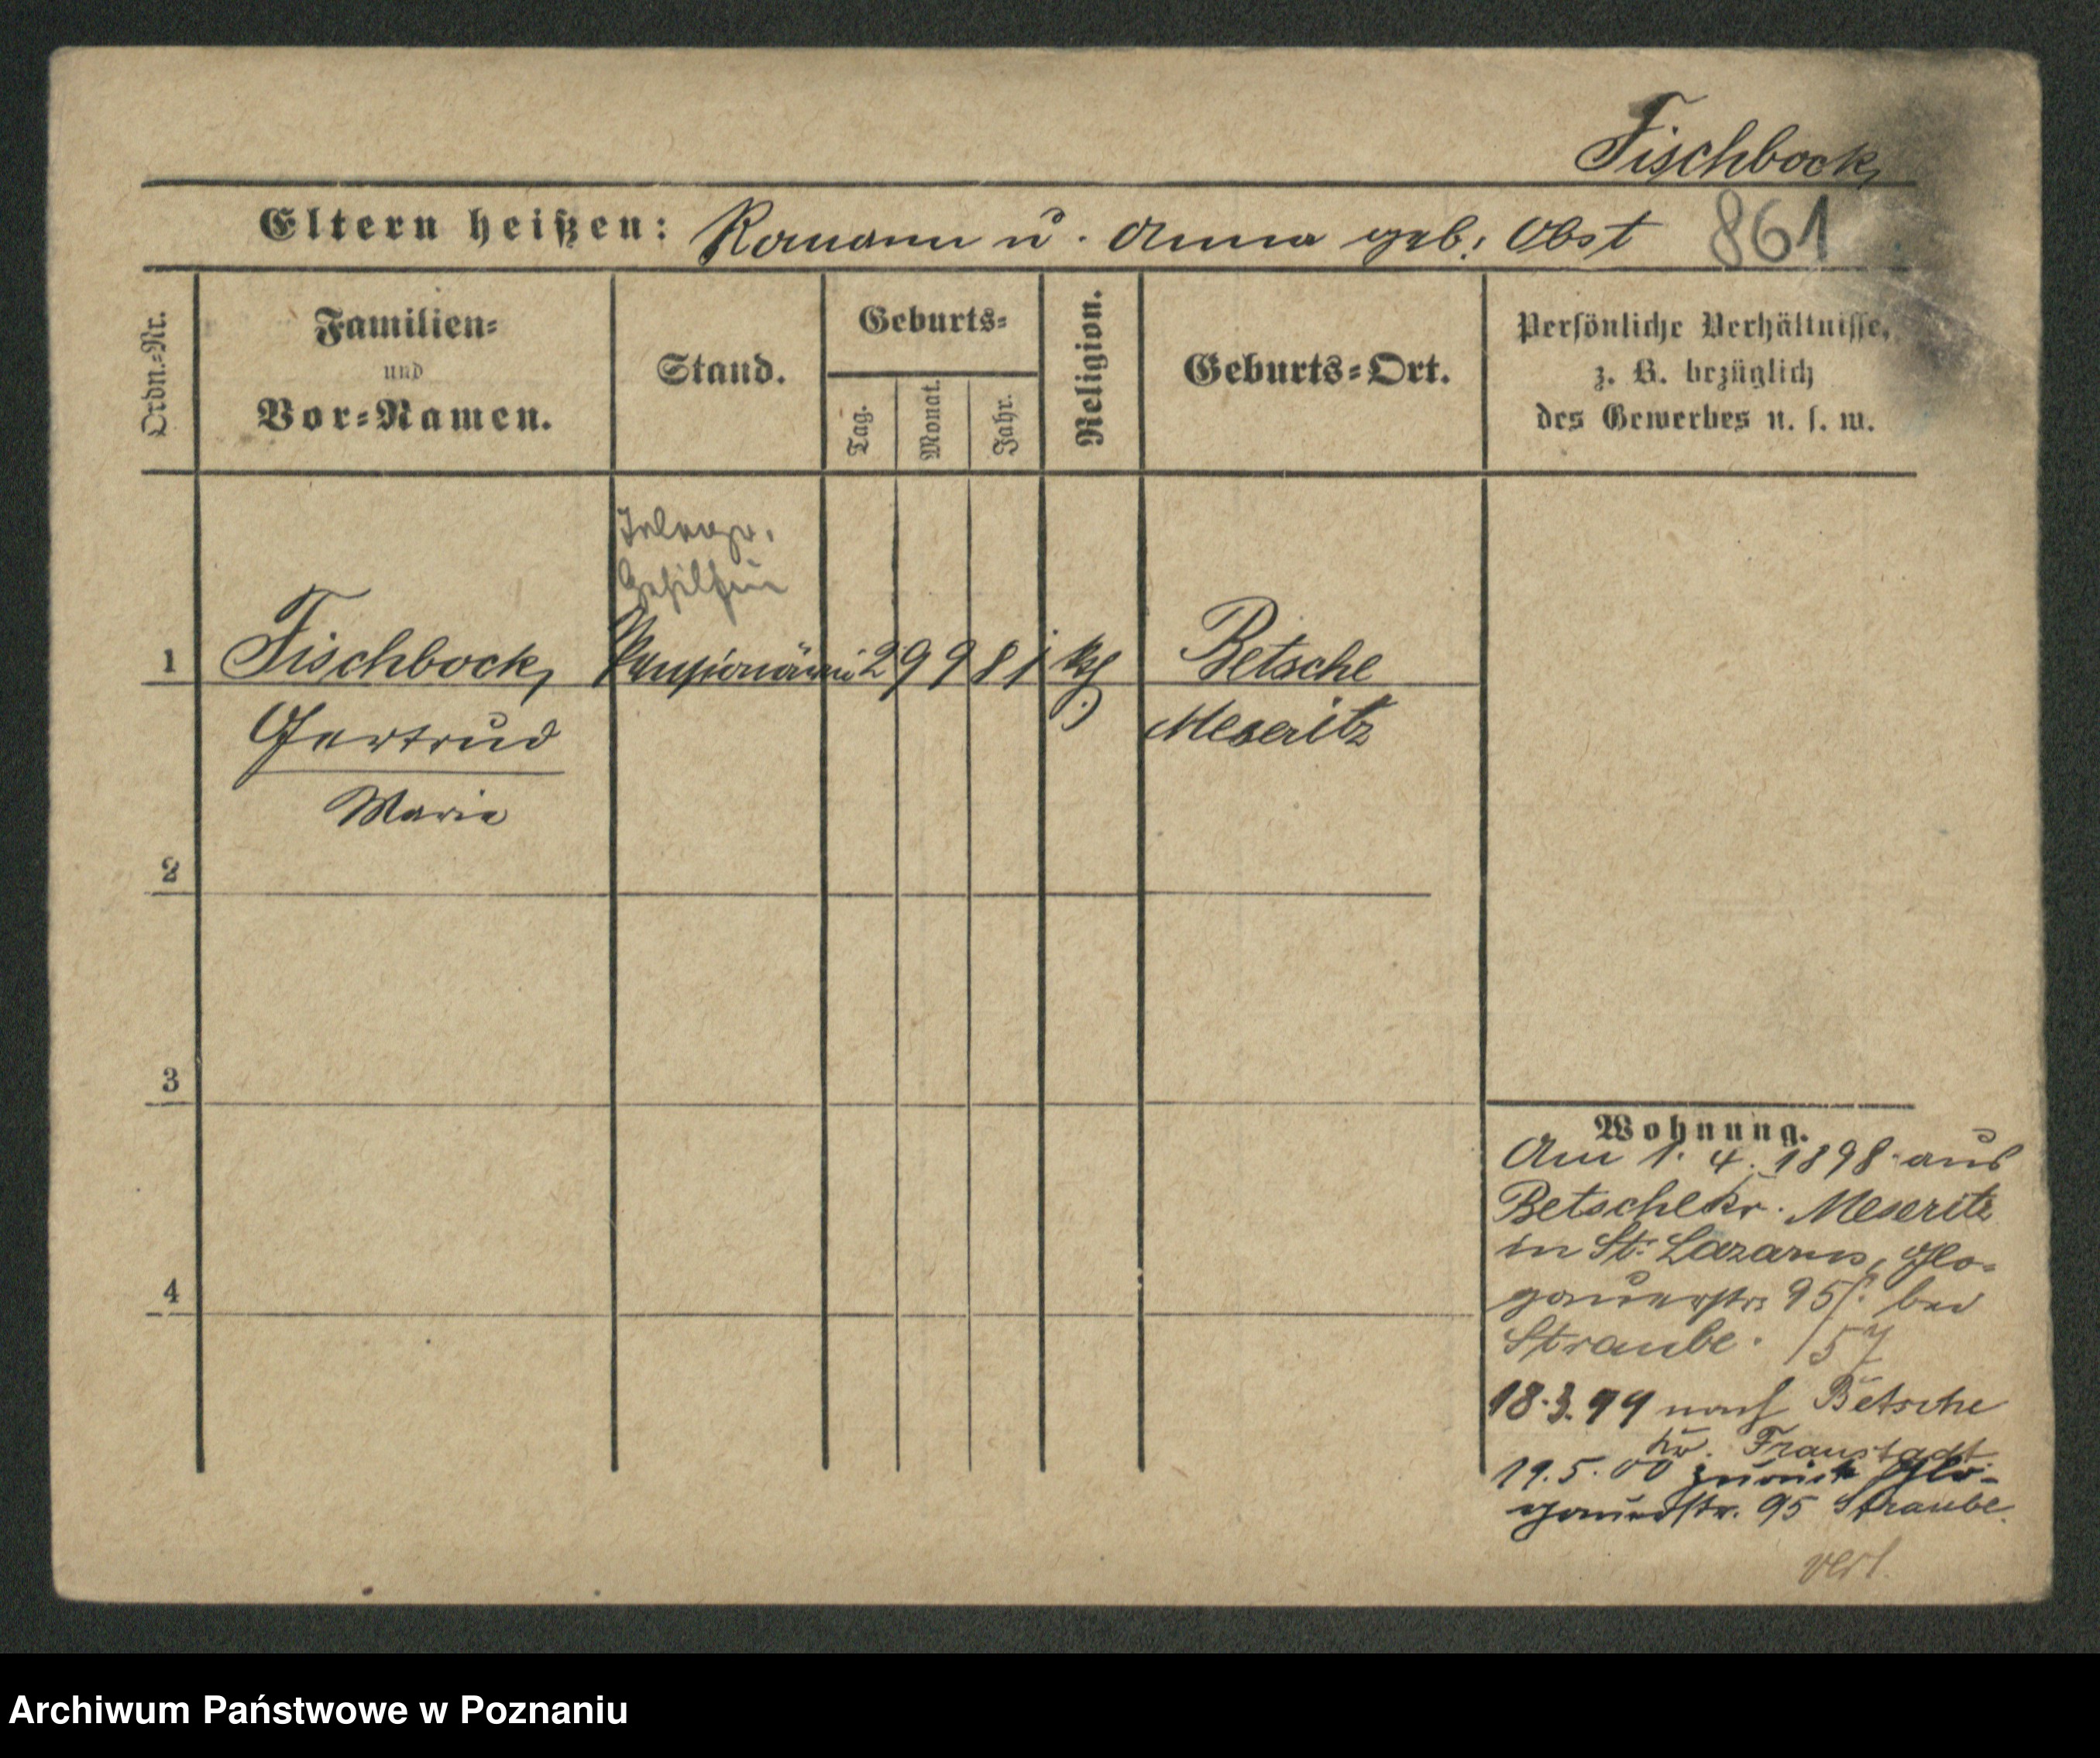 Fischbock,
Eltern heißen: Romann u. Anna geb: Obst 861
Ordn.=Nr.
Familien=
und
Vor=Namen.
Stand.
Geburts=
Tag.
Monat.
Jahr.
Religion.
Geburts=Ort.
Persönliche Verhältnisse,
z. B. bezüglich
des Gewerbes u. s. w.
Telegr.
Gehilfin
1 Fischbock, Pensionärin 29 9 81 Betsche
Gertrud Meseritz
Marie
2
3
4
Wohnung.
Am 1. 4. 1898 aus
Betsche Kr. Meseritz
in St. Lazarus, Glo-
gauerstr. 95 bei
Straube. 157
18.3.99 nach Betsche
Kr. Fraustadt
19.5.00 zurück Glo-
gauerstr. 95 Straube.
verl.
Archiwum Państwowe w Poznaniu